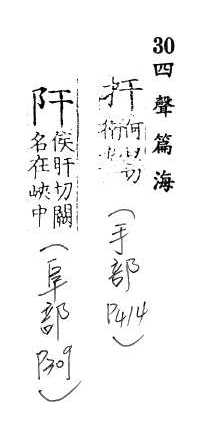 30四聲篇海
扞
何旦切
(手部P414)
侯旰切關
名在峽中
(阜部P309)